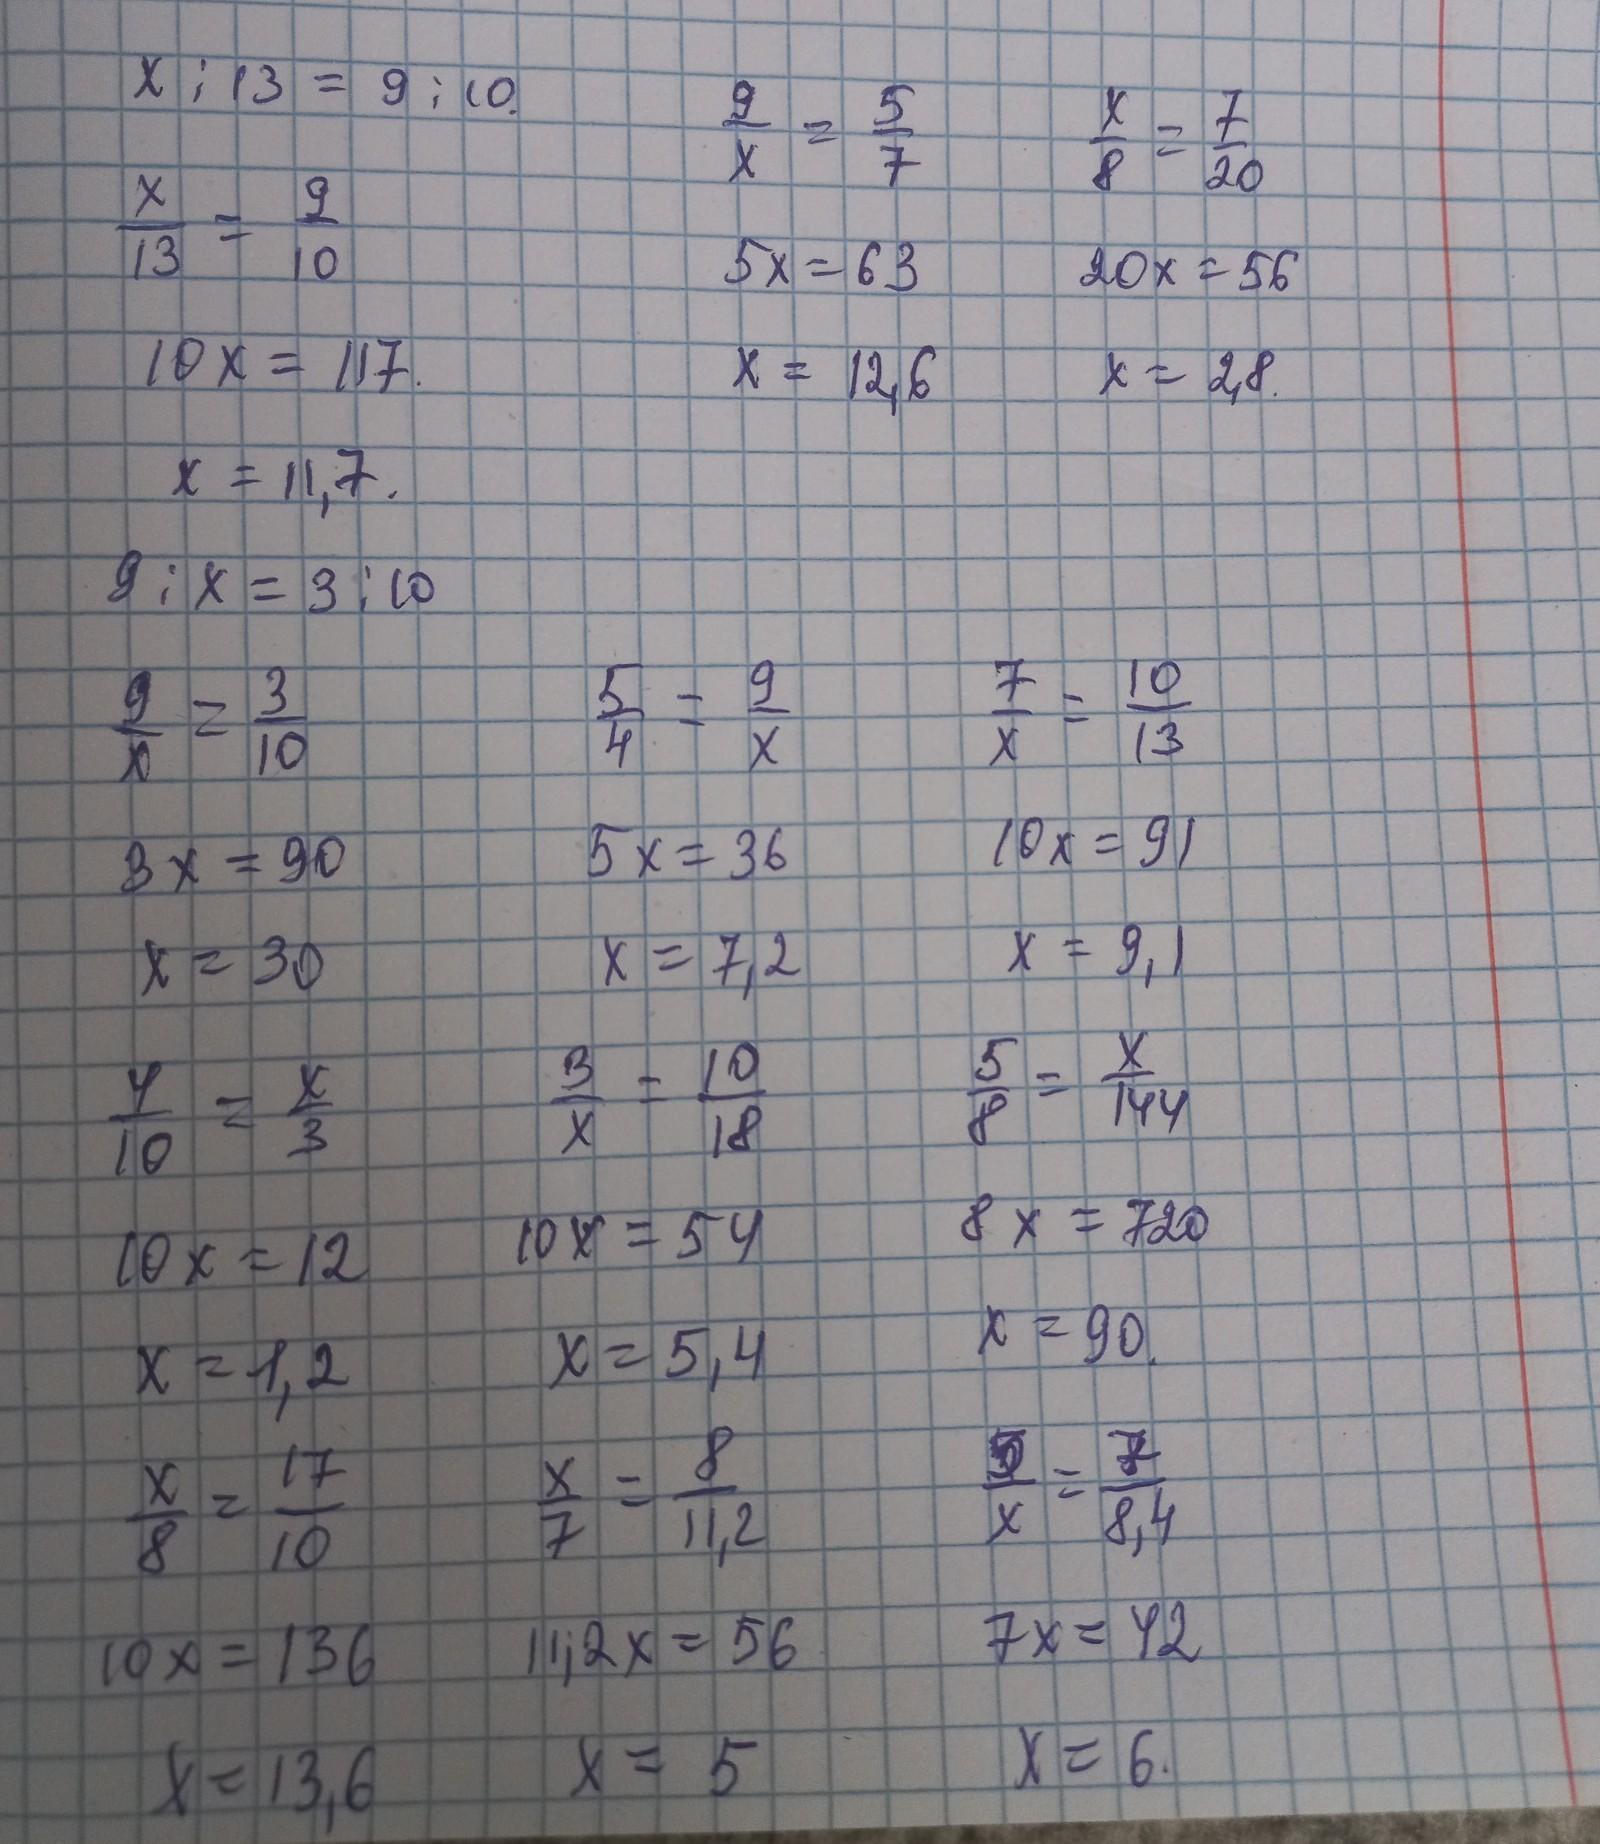 x : 13 = 9 : 10.
x/13 = 9/10
10x = 117.
x = 11,7.
9/x = 5/7
5x = 63
x = 12,6
x/8 = 7/20
20x = 56
x = 2,8.
9 : x = 3 : 10
9/x = 3/10
3x = 90
x = 30
5/4 = 9/x
5x = 36
x = 7,2
7/x = 10/13
10x = 91
x = 9,1
4/10 = x/3
10x = 12
x = 1,2
3/x = 10/18
10x = 54
x = 5,4
5/8 = x/144
8x = 720
x = 90.
x/8 = 17/10
10x = 136
x = 13,6
x/7 = 8/11,2
11,2x = 56
x = 5
5/x = 7/8,4
7x = 42
x = 6.